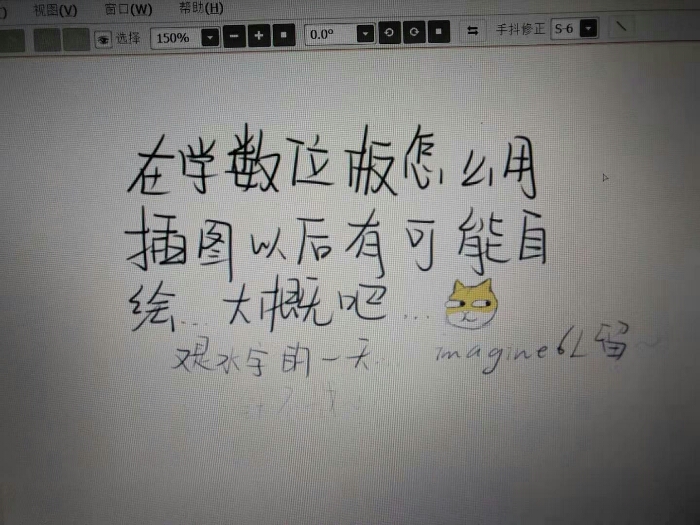 视图(V) 窗口(W) 帮助(H)
选择 150% 0.0° 手抖修正 S-6
在学数位板怎么用
插图以后有可能自
绘...大概吧...
又是水字的一天... imagine6L留